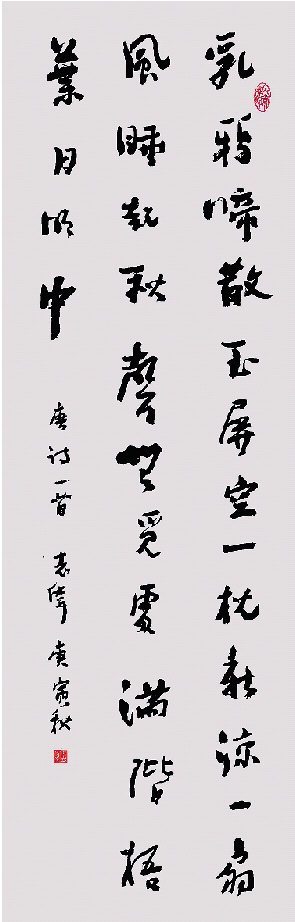 乳鴉啼散玉屏空一枕新涼一扇
風睡起秋聲無覓處滿階梧
葉月明中
唐诗一首 庚寅秋